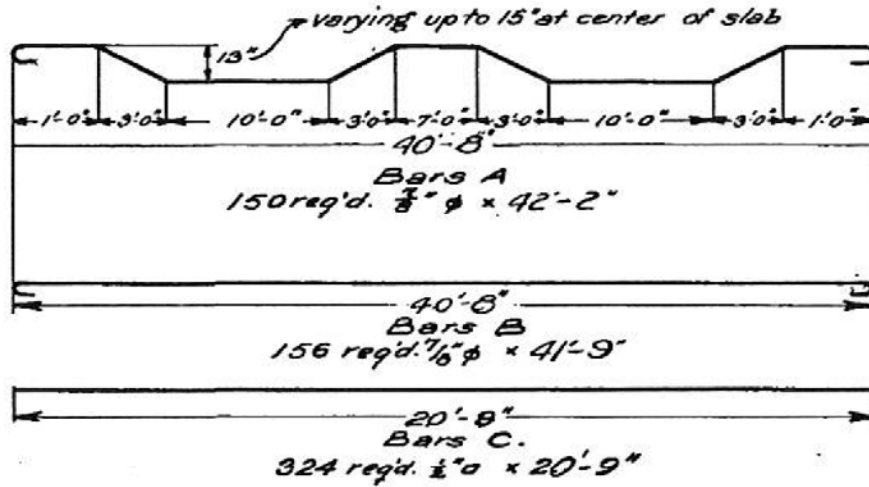 varying up to 15" at center of slab
13"
1'-0" 3'-0" 10'-0" 3'-0" 7'-0" 3'-0" 10'-0" 3'-0" 1'-0"
40'-8"
Bars A
150 req'd. 7/8" φ × 42'-2"
40'-8"
Bars B
156 req'd. 7/8" φ × 41'-9"
20'-9"
Bars C.
324 req'd. 1/2" □ × 20'-9"